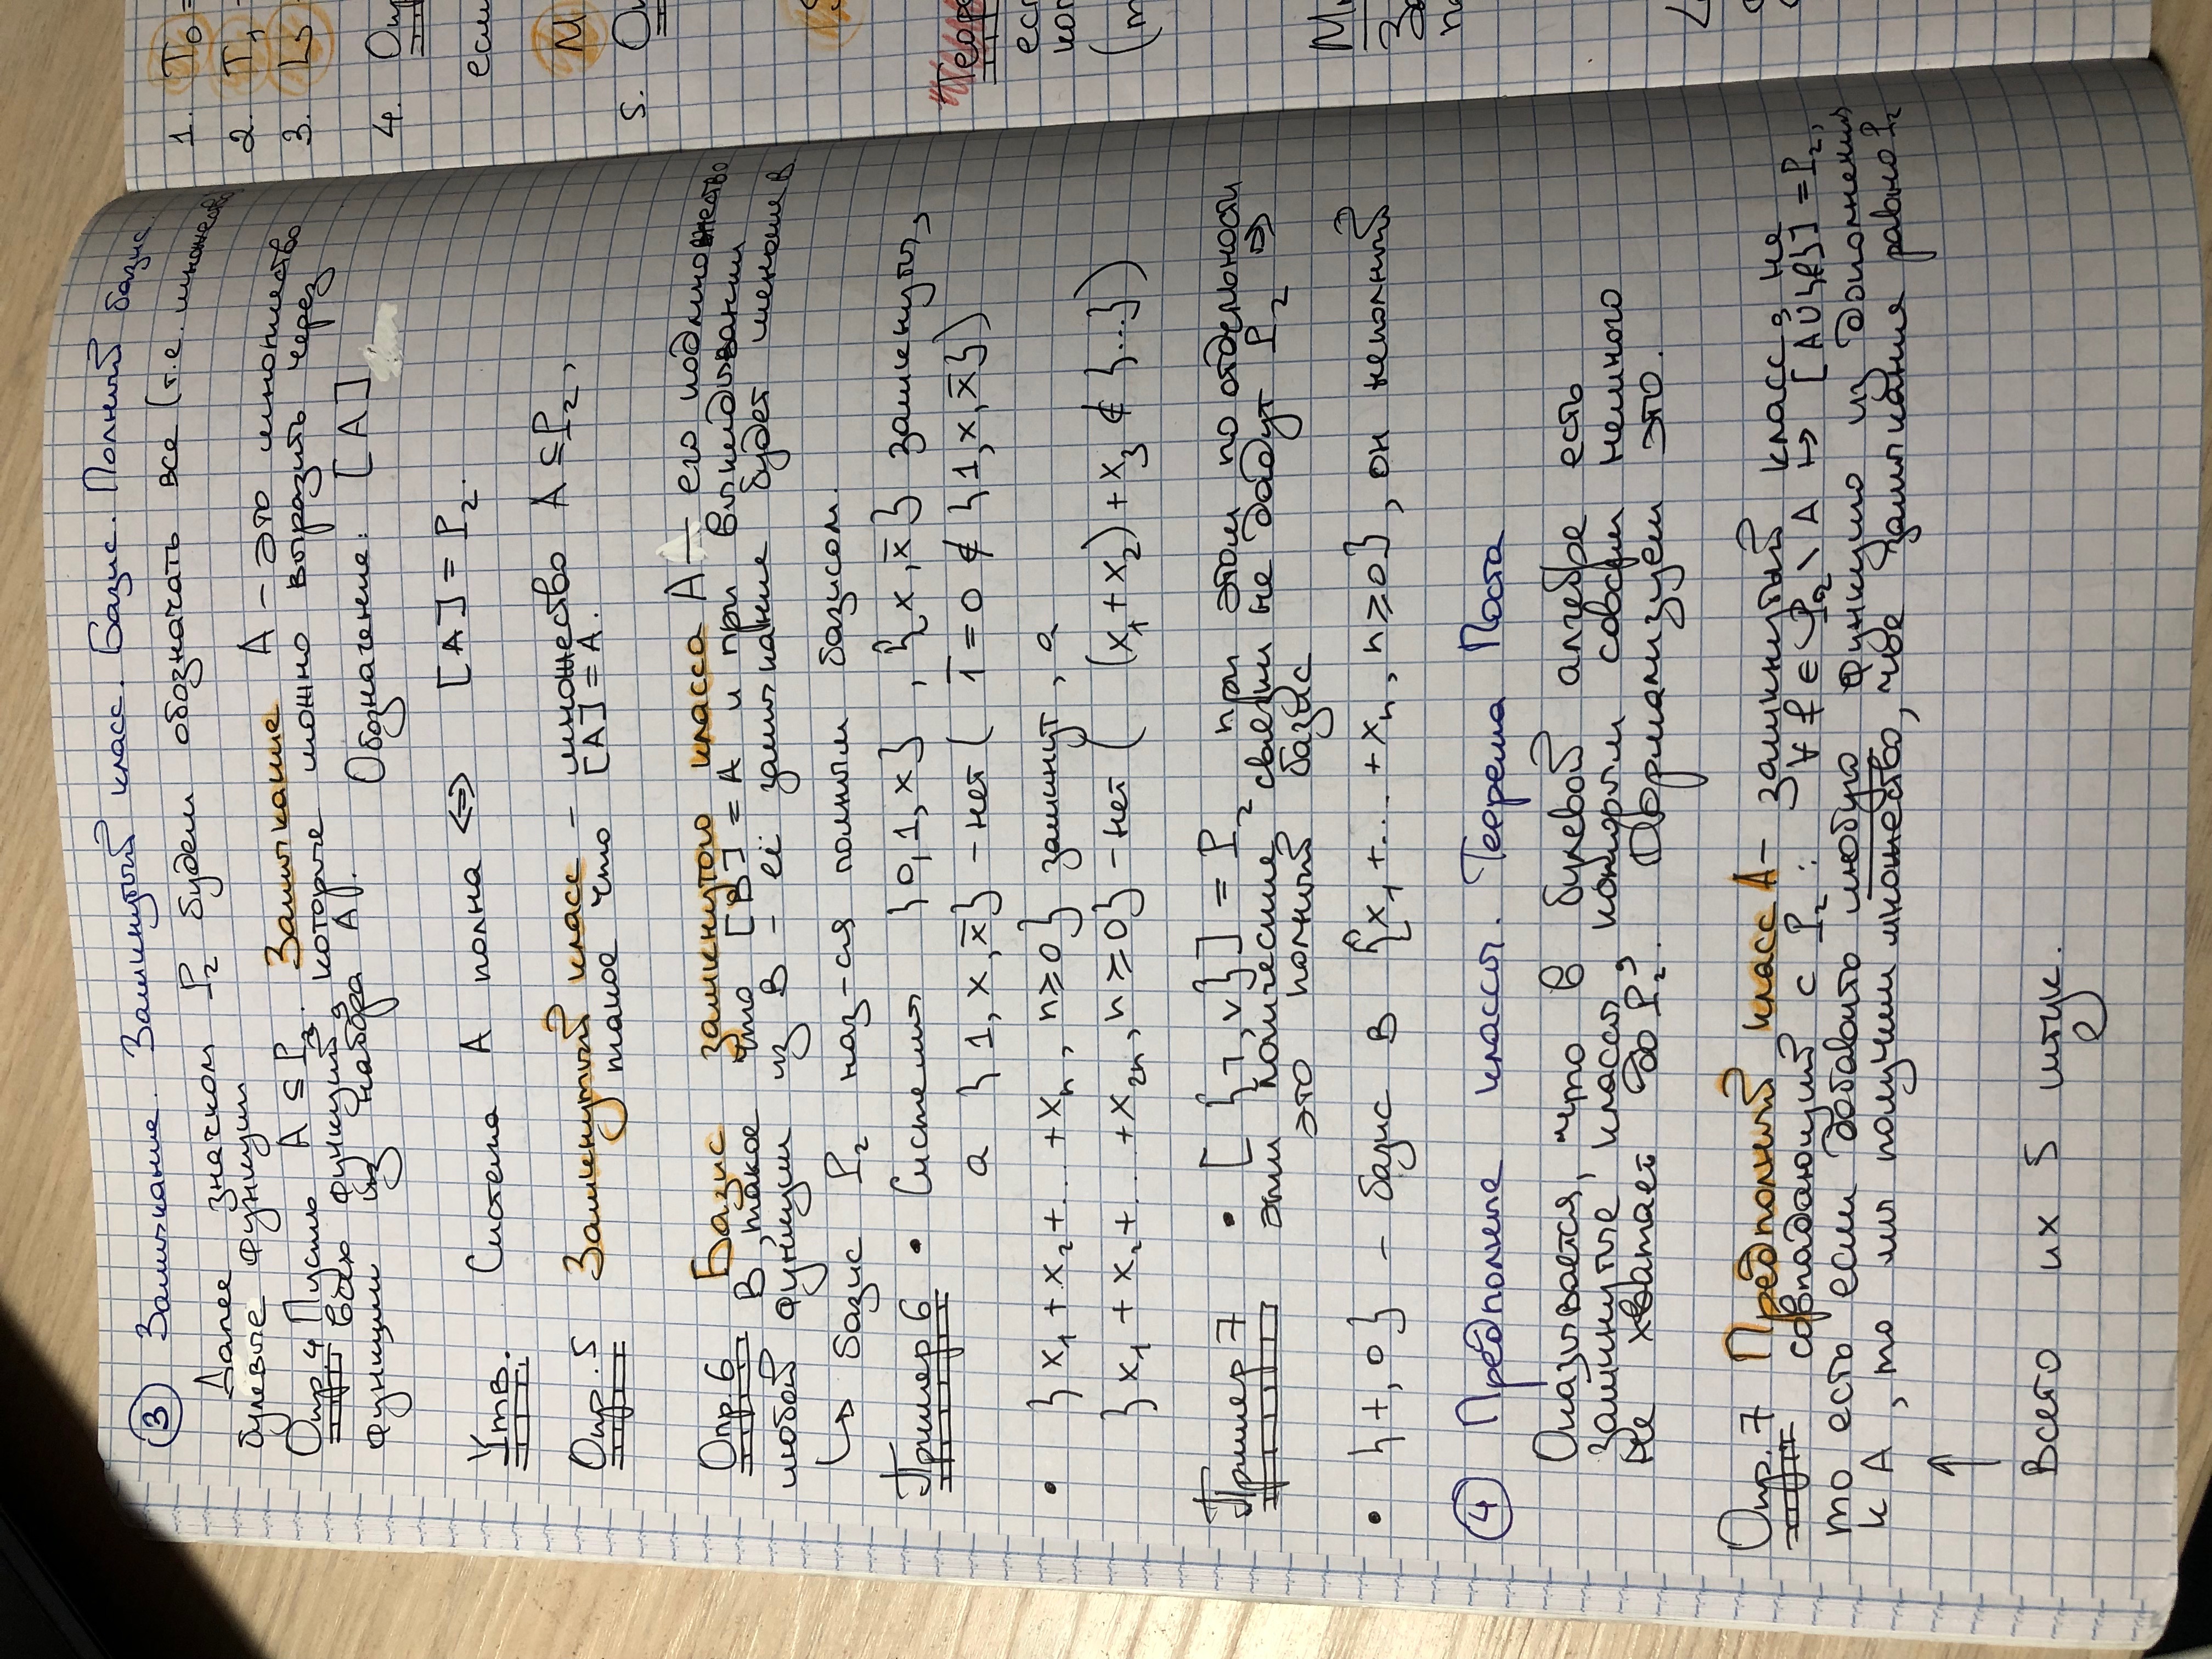 ③ Замыкание. Замкнутый класс. Базис. Полный базис.
Далее значком P₂ будем обозначать все (т.е. множество
булевые функции
Опр.4 Пусть A ⊆ P₂. Замыкание A – это множество
всех функций, которые можно выразить через
функции из набора A.
Обозначение: [A]
Утв. Система A полна ⟺ [A] = P₂.
Опр.5 Замкнутый класс – множество A ⊆ P₂,
такое что [A] = A.
Опр.6 Базис замкнутого класса A – его подмножество
B, такое что [B] = A и при выкидывании
любой функции из B – её замыкание будет меньше B
↳ базис P₂ наз-ся полным базисом.
Пример 6 • Системы {0, 1, x}, {x, x̄} замкнуты,
а {1, x, x̄} – нет ( 1̄ = 0 ∉ {1, x, x̄})
• {x₁ + x₂ + ... + xₙ, n ≥ 0} замкнут, а
{x₁ + x₂ + ... + x₂ₙ, n ≥ 0} – нет ( (x₁ + x₂) + x₃ ∉ {...})
Пример 7 • [ {¬, ∨} ] = P₂ при этом по отдельности
эти логические связки не дадут P₂ ⇒
это полный базис
• {+, 0} – базис в {x₁ + ... + xₙ, n ≥ 0}, он неполный
④ Предполные классы. Теорема Поста
Оказывается, что в булевой алгебре есть
замкнутые классы, которым совсем немного
не хватает до P₂. Формализуем это.
Опр.7 Предполный класс A – замкнутый класс, не
совпадающий с P₂ : ∀ f ∈ P₂ \ A ↦ [A ∪ {f}] = P₂,
то есть если добавить любую функцию из дополнения
к A, то мы получим множество, чьё замыкание равно P₂
↑
Всего их 5 штук.
1. T₀ =
2. T₁
3. L
4. Опр
если
M
5. Оп
S
Теоре
есл
(т